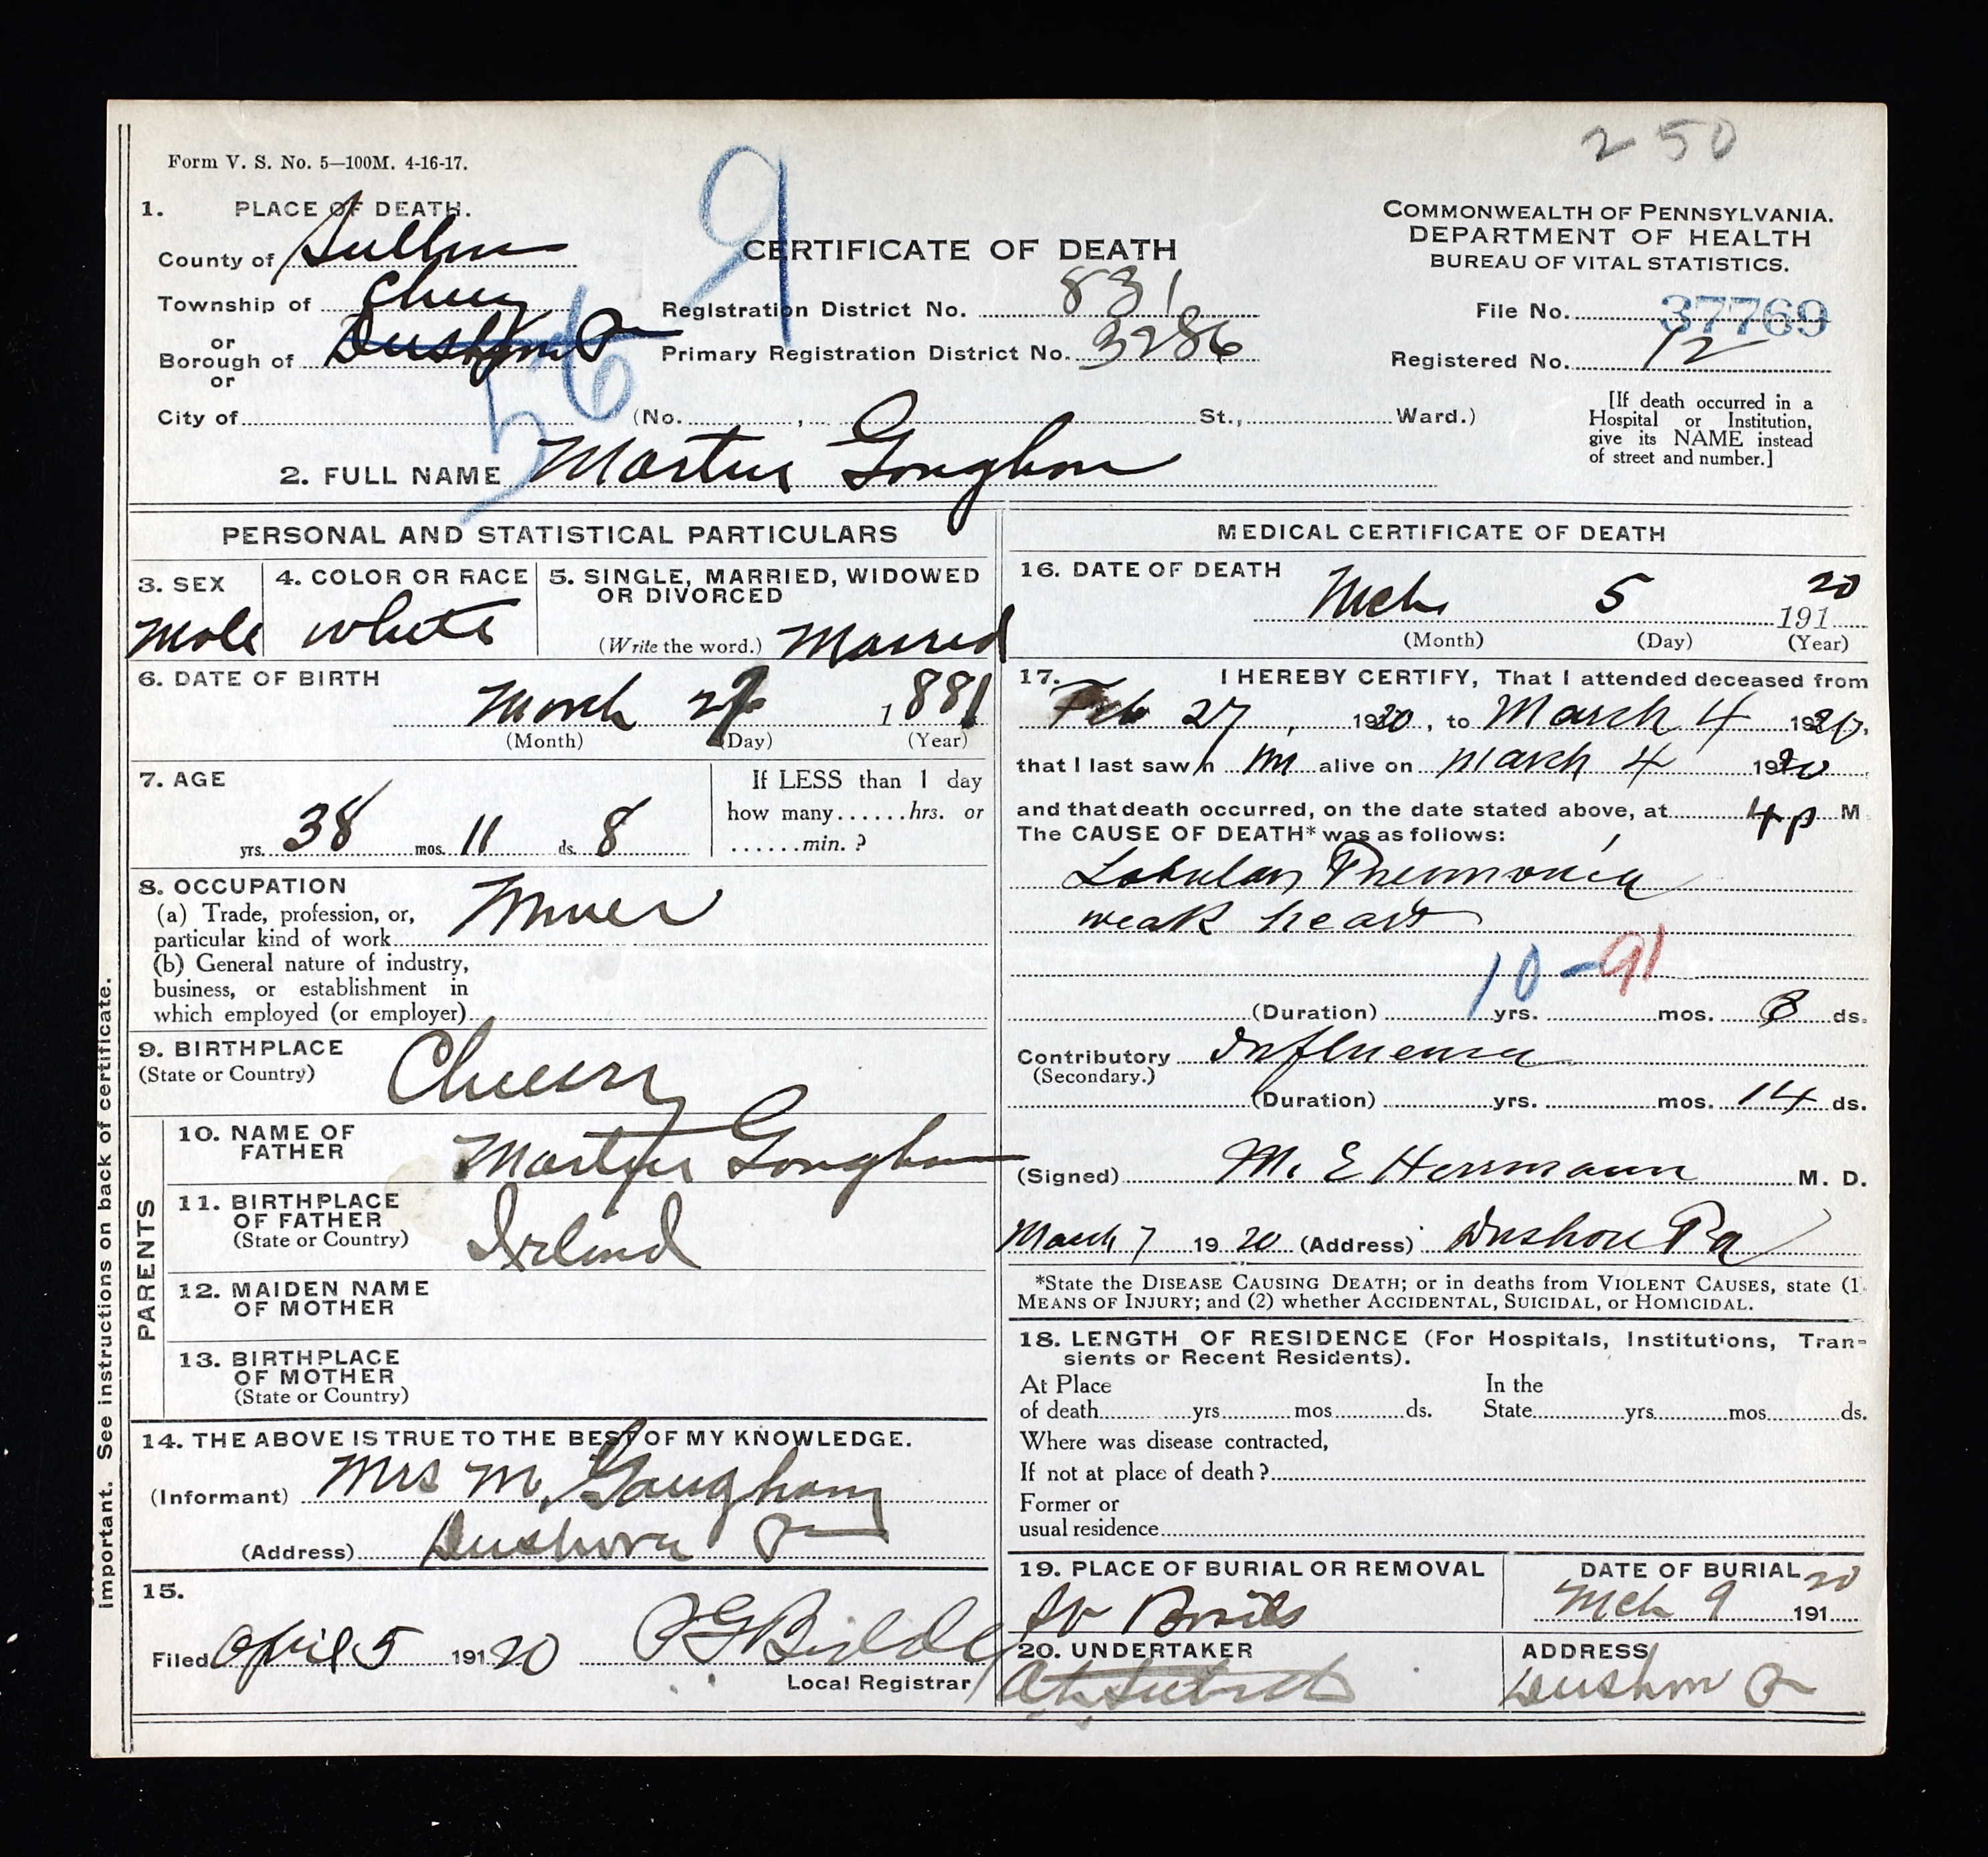 250
Form V. S. No. 5—100M. 4-16-17.
1. PLACE OF DEATH.
County of Sullivan
Township of Cherry
or
Borough of Dushore Pa
or
City of
CERTIFICATE OF DEATH
Registration District No. 831
Primary Registration District No. 3286
(No. , St., Ward.)
COMMONWEALTH OF PENNSYLVANIA.
DEPARTMENT OF HEALTH
BUREAU OF VITAL STATISTICS.
File No. 37769
Registered No. 12
[If death occurred in a
Hospital or Institution,
give its NAME instead
of street and number.]
9
56
2. FULL NAME Martin Goughan
PERSONAL AND STATISTICAL PARTICULARS
3. SEX
Male
4. COLOR OR RACE
White
5. SINGLE, MARRIED, WIDOWED
OR DIVORCED
(Write the word.) Married
6. DATE OF BIRTH
March 27 1881
(Month) (Day) (Year)
7. AGE
yrs. 38 mos. 11 ds. 8
If LESS than 1 day
how many......hrs. or
......min. ?
8. OCCUPATION
(a) Trade, profession, or,
particular kind of work Miner
(b) General nature of industry,
business, or establishment in
which employed (or employer)
9. BIRTHPLACE
(State or Country)
Cherry
PARENTS
10. NAME OF
FATHER
Martin Goughan
11. BIRTHPLACE
OF FATHER
(State or Country)
Irelend
12. MAIDEN NAME
OF MOTHER
13. BIRTHPLACE
OF MOTHER
(State or Country)
14. THE ABOVE IS TRUE TO THE BEST OF MY KNOWLEDGE.
(Informant) Mrs M. Gaughan
(Address) Dushore Pa
15.
Filed April 5 191 20
Local Registrar
MEDICAL CERTIFICATE OF DEATH
16. DATE OF DEATH
Mch 5 191 20
(Month) (Day) (Year)
17. I HEREBY CERTIFY, That I attended deceased from
Feb 27, 1920, to March 4 1920,
that I last saw h im alive on March 4 1920
and that death occurred, on the date stated above, at 4 p M
The CAUSE OF DEATH* was as follows:
Lobular Pneumonia
weak heart
10-91
(Duration) yrs. mos. 8 ds.
Contributory Influenza
(Secondary.)
(Duration) yrs. mos. 14 ds.
(Signed) M. E Herrmann M. D.
March 7 19 20 (Address) Dushore Pa
*State the DISEASE CAUSING DEATH; or in deaths from VIOLENT CAUSES, state (1
MEANS OF INJURY; and (2) whether ACCIDENTAL, SUICIDAL, or HOMICIDAL.
18. LENGTH OF RESIDENCE (For Hospitals, Institutions, Tran-
sients or Recent Residents).
At Place
of death yrs mos ds.
In the
State yrs mos ds.
Where was disease contracted,
If not at place of death ?
Former or
usual residence
19. PLACE OF BURIAL OR REMOVAL
St Basils
DATE OF BURIAL
Mch 9 191 20
20. UNDERTAKER
ADDRESS
Dushore Pa
important. See instructions on back of certificate.